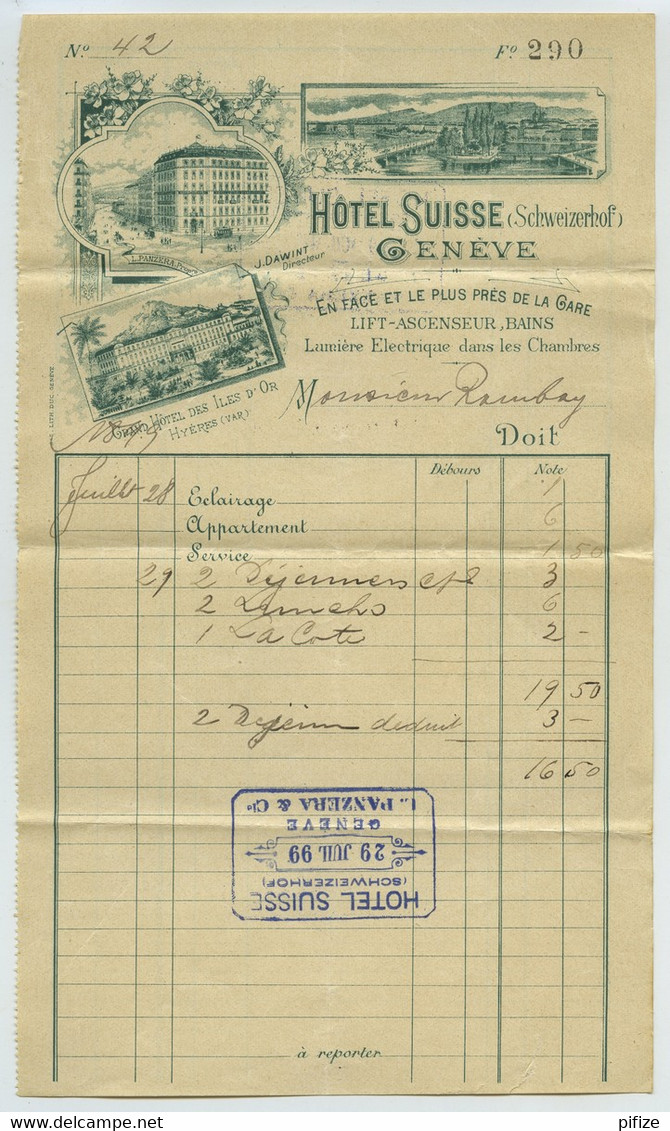 Nº 42 Fº 290
L. PANZERA, Propre
J. DAWINT
Directeur
HÔTEL SUISSE (Schweizerhof)
GENÈVE
EN FACE ET LE PLUS PRÈS DE LA GARE
LIFT-ASCENSEUR, BAINS
Lumière Electrique dans les Chambres
GRAND HÔTEL DES ILES D'OR
HYÈRES (VAR)
LITH. DUC. GENÈVE.
Monsieur Rambay
Doit
Débours Note
Juillet 28 Eclairage 1
Appartement 6
Service 1 50
29 2 Déjeuners 3
2 Lunchs 6
1 La Cote 2 –
19 50
2 Dejeun deduit 3 –
16 50
HOTEL SUISSE
(SCHWEIZERHOF)
29 JUIL 99
GENÈVE
L. PANZERA & Cie
à reporter
pifize